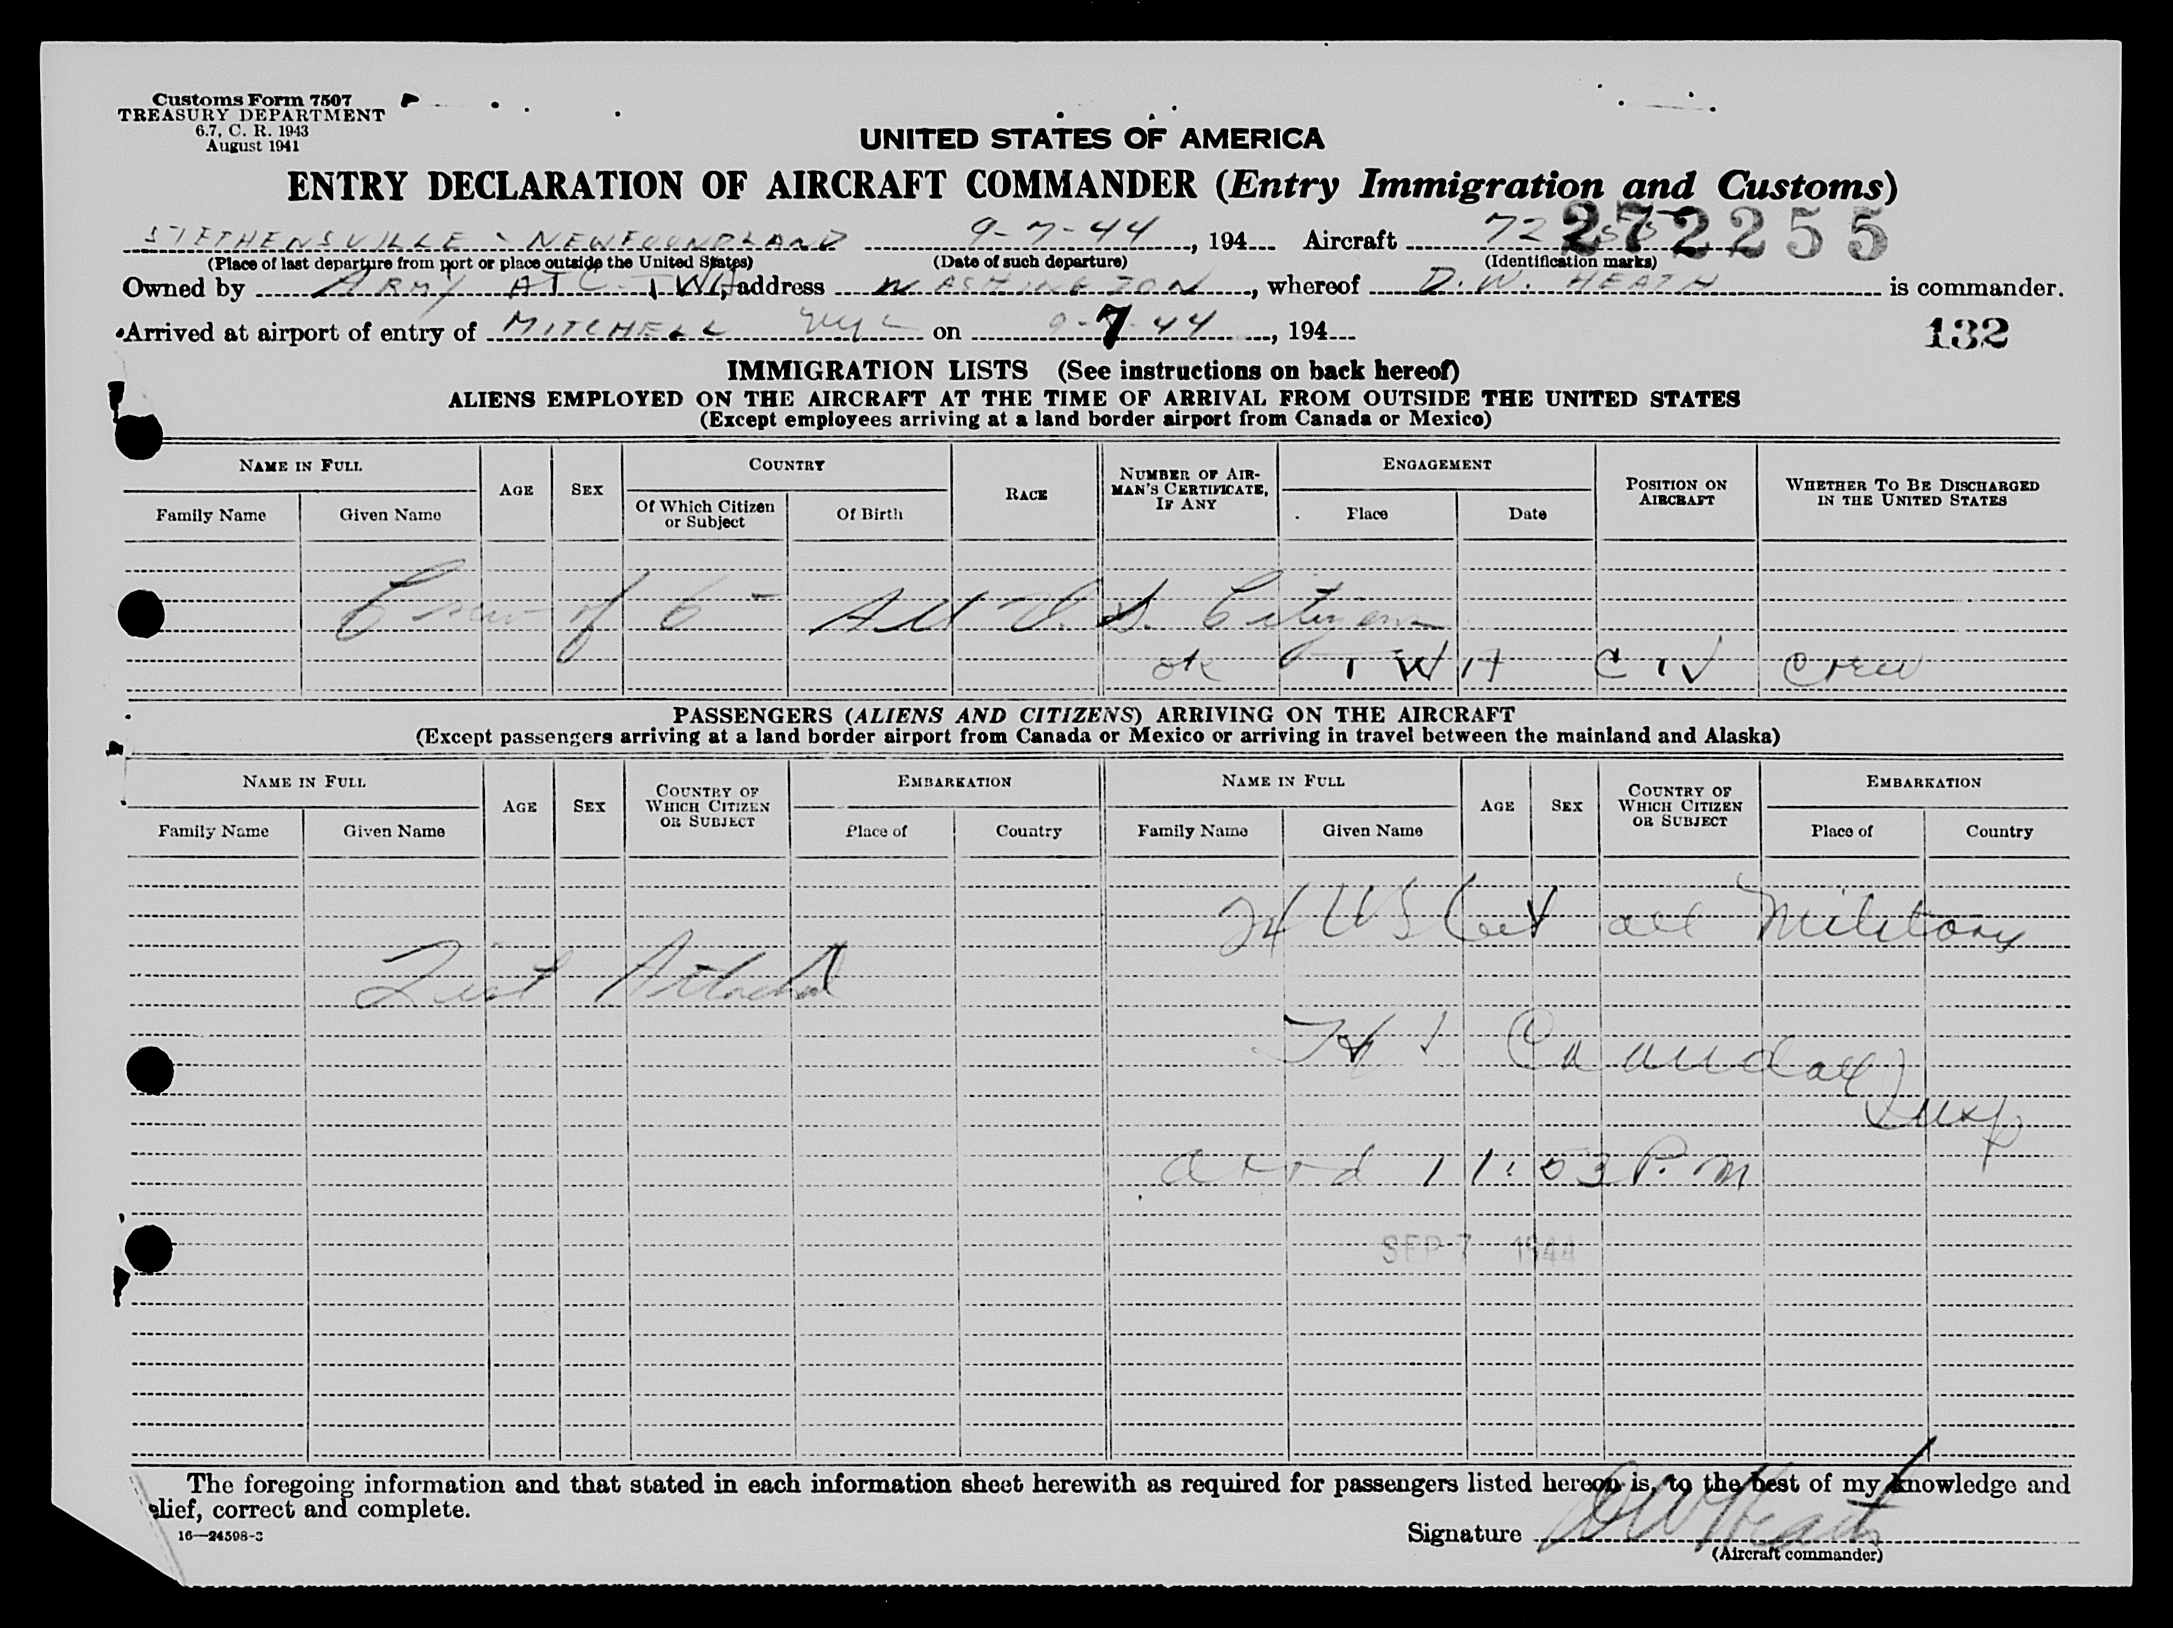 Customs Form 7507
TREASURY DEPARTMENT
6.7, C. R. 1943
August 1941
UNITED STATES OF AMERICA
ENTRY DECLARATION OF AIRCRAFT COMMANDER (Entry Immigration and Customs)
STEPHENSVILLE - NEWFOUNDLAND 9-7-44, 194 Aircraft 72 272255
(Place of last departure from port or place outside the United States) (Date of such departure) (Identification marks)
Owned by ARMY ATC - TWA, address WASHINGTON, whereof D. W. HEATH is commander.
Arrived at airport of entry of MITCHELL NYC on 9-7-44, 194
132
IMMIGRATION LISTS (See instructions on back hereof)
ALIENS EMPLOYED ON THE AIRCRAFT AT THE TIME OF ARRIVAL FROM OUTSIDE THE UNITED STATES
(Except employees arriving at a land border airport from Canada or Mexico)
NAME IN FULL AGE SEX COUNTRY RACE NUMBER OF AIRMAN'S CERTIFICATE, IF ANY ENGAGEMENT POSITION ON AIRCRAFT WHETHER TO BE DISCHARGED IN THE UNITED STATES
Family Name Given Name Of Which Citizen or Subject Of Birth Place Date
Crew of 6 - All U. S. Citizens
ok TWA CIV Crew
PASSENGERS (ALIENS AND CITIZENS) ARRIVING ON THE AIRCRAFT
(Except passengers arriving at a land border airport from Canada or Mexico or arriving in travel between the mainland and Alaska)
NAME IN FULL AGE SEX COUNTRY OF WHICH CITIZEN OR SUBJECT EMBARKATION NAME IN FULL AGE SEX COUNTRY OF WHICH CITIZEN OR SUBJECT EMBARKATION
Family Name Given Name Place of Country Family Name Given Name Place of Country
24 US Cit all Military
List Attached
Crandall
Insp
arrd 11:53 P.M
SEP 7 1944
The foregoing information and that stated in each information sheet herewith as required for passengers listed hereon is, to the best of my knowledge and
elief, correct and complete.
16—24598-3
Signature D W Heath
(Aircraft commander)